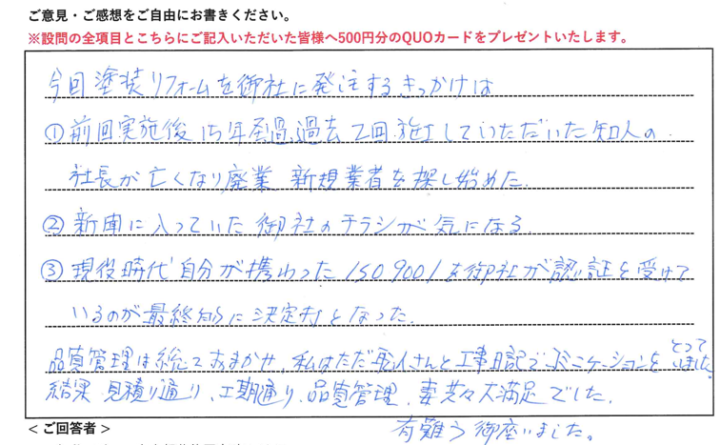 ご意見・ご感想をご自由にお書きください。
※設問の全項目とこちらにご記入いただいた皆様へ500円分のQUOカードをプレゼントいたします。
今回塗装リフォームを御社に発注するきっかけは
①前回実施後15年経過、過去2回施工していただいた知人の
社長が亡くなり廃業 新規業者を探し始めた。
②新聞に入っていた御社のチラシが気になる
③現役時代自分が携わったISO9001を御社が認証を受けて
いるのが最終的に決定打となった。
品質管理は総ておまかせ、私はただ職人さんと工事日記でコミュニケーションをとっていました。
結果 見積り通り、工期通り、品質管理、妻共々大満足でした。
有難う御座いました。
< ご回答者 >